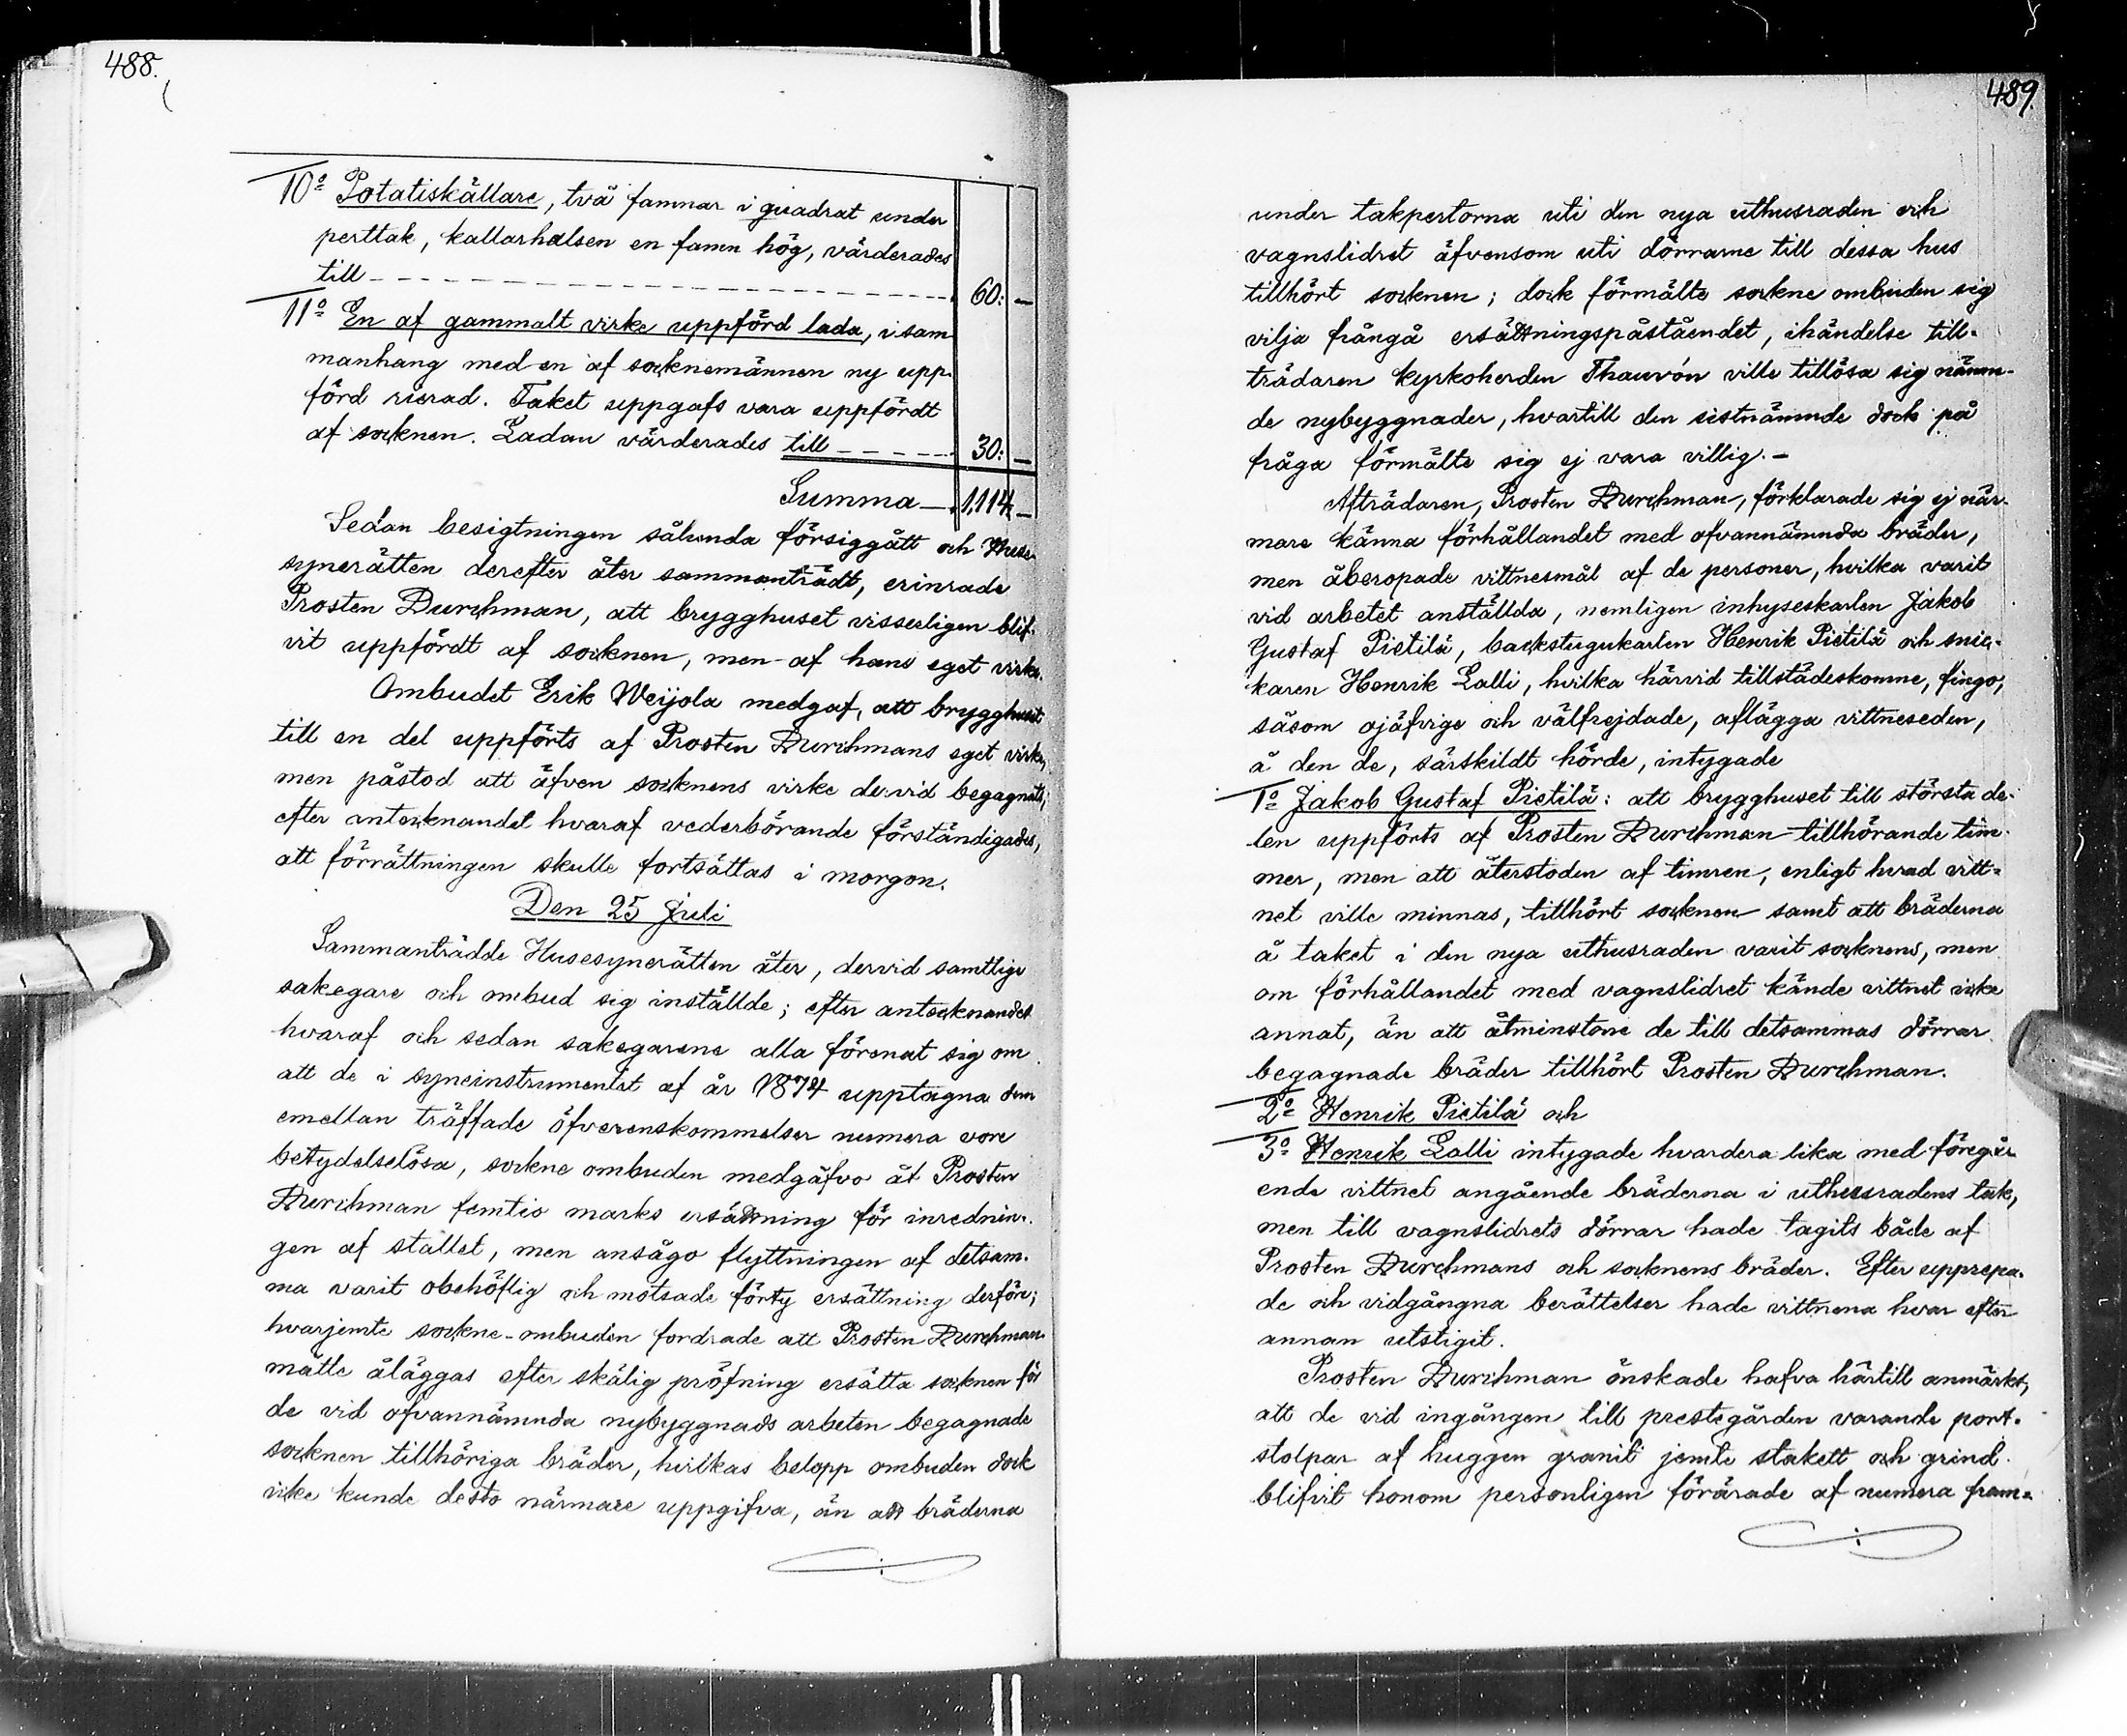 488.
10o Potatiskällare, två famnar i quadrat under
perttak, källarhalsen en famn hög, värderades
till - - - 60: —
11o En af gammalt virke uppförd lada, i sam
manhang med en af socknemännen ny upp-
förd rierad. Taket uppgafs vara uppfördt
af socknen. Ladan värderades till - - - 30: —
Summa — 1,114 —
Sedan besigtningen sålunda försiggått och Huse
synerätten derefter åter sammanträdt, erinrade
Prosten Durchman, att brygghuset visserligen blif-
vit uppfördt af socknen, men af hans eget virke.
Ombudet Erik Weijola medgaf, att brygghuset
till en del uppförts af Prosten Durchmans eget virke,
men påstod att äfven socknens virke dervid begagnats;
efter antecknandet hvaraf vederbörande förständigades,
att förrättningen skulle fortsättas i morgon.
Den 25 Juli
Sammanträdde Husesynerätten åter, dervid samtlige
sakegare och ombud sig inställde; efter antecknandet
hvaraf och sedan sakegarene alla förenat sig om
att de i syneinstrumentet af år 1874 upptagna dem
emellan träffade öfverenskommelser numera vore
betydelselösa, sockne ombuden medgåfvo åt Prosten
Durchman femtio marks ersättning för inrednin-
gen af stallet, men ansågo flyttningen af detsam-
ma varit obehöflig och motsade förty ersättning derför;
hvarjemte sockne-ombuden fordrade att Prosten Durchman
måtte åläggas efter skälig pröfning ersätta socknen för
de vid ofvannämnda nybyggnads arbeten begagnade
socknen tillhöriga bräder, hvilkas belopp ombuden dock
icke kunde desto närmare uppgifva, än att bräderna
489.
under takpertorna uti den nya uthusraden och
vagnslidret äfvensom uti dörrarne till dessa hus
tillhört socknen; dock förmälte sockne ombuden sig
vilja frångå ersättningspåståendet, ihändelse till-
trädaren kyrkoherden Thauvón ville tillösa sig nämn-
de nybyggnader, hvartill den sistnämnde dock på
fråga förmälte sig ej vara villig. —
Afträdaren, Prosten Durchman, förklarade sig ej när-
mare känna förhållandet med ofvannämnda bräder,
men åberopade vittnesmål af de personer, hvilka varit
vid arbetet anställda, nemligen inhyseskarlen Jakob
Gustaf Pietilä, backstugukarlen Henrik Pietilä och snic-
karen Henrik Lalli, hvilka härvid tillstädeskomne, fingo,
såsom ojäfvige och välfrejdade, aflägga vittneseden,
å den de, särskildt hörde, intygade
1o Jakob Gustaf Pietilä: att brygghuset till största de-
len uppförts af Prosten Durchman tillhörande tim-
mer, men att återstoden af timren, enligt hvad vitt-
net ville minnas, tillhört socknen samt att bräderna
å taket i den nya uthusraden varit socknens, men
om förhållandet med vagnslidret kände vittnet icke
annat, än att åtminstone de till detsammas dörrar
begagnade bräder tillhört Prosten Durchman.
2o Henrik Pietilä och
3o Henrik Lalli intygade hvardera lika med föregå-
ende vittnet angående bräderna i uthusradens tak,
men till vagnslidrets dörrar hade tagits både af
Prosten Durchmans och socknens bräder. Efter upprepa-
de och vidgångna berättelser hade vittnena hvar efter
annan utstigit.
Prosten Durchman önskade hafva härtill anmärkt,
att de vid ingången till prestegården varande port-
stolpar af huggen granit jemte stakett och grind
blifvit honom personligen förärade af numera fram-